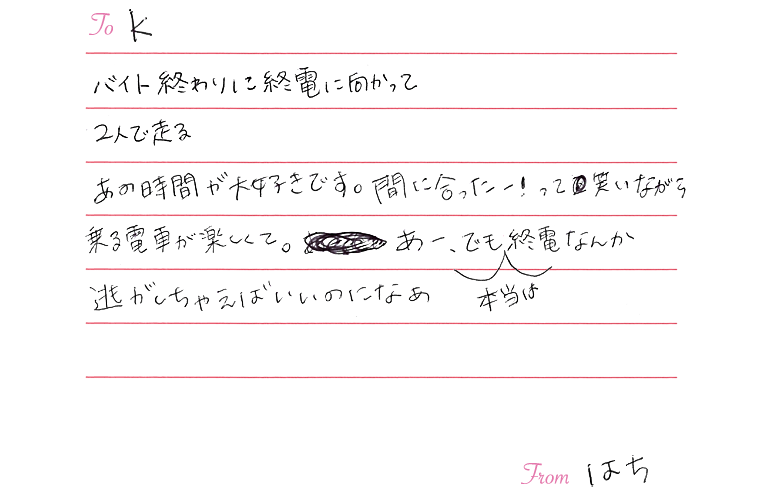 To K
バイト終わりに終電に向かって
2人で走る
あの時間が大好きです。間に合ったー!って笑いながら
乗る電車が楽しくて。 あー、でも終電なんか
本当は
逃がしちゃえばいいのになぁ
From はち